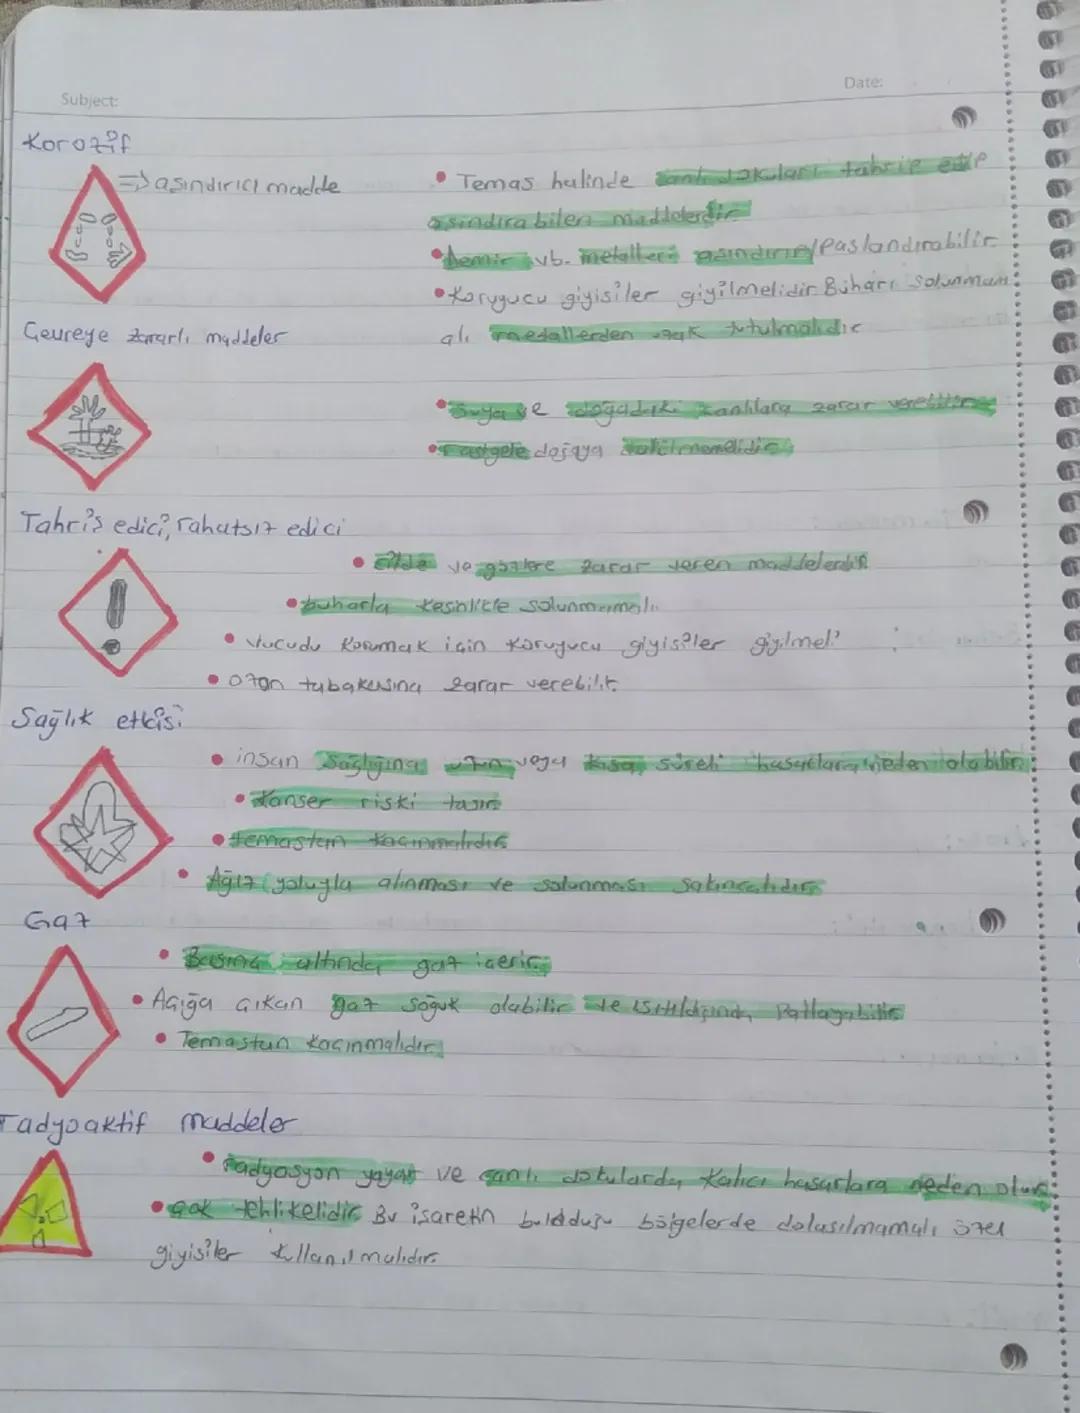 Subject:
Date:
Korozif
=> aşındırıcı madde
• Temas halinde canlı dokuları tahrip edip
aşındırabilen maddelerdir
• Demir vb. metalleri aşındırıp/Paslandırabilir
• Koruyucu giyisiler giyilmelidir Buharı solunmam
alı metallerden uzak tutulmalıdır
Çevreye zararlı maddeler
• Suya ve doğadaki canlılara zarar verebilir
• rastgele doğaya atılmamalıdır
Tahriş edici, rahatsız edici
• Cilde ve gözlere zarar veren maddelerdir
• buharla kesinlikle solunmamalı
• Vucudu korumak için koruyucu giyisiler giyilmeli
• Ozon tabakasına zarar verebilir
Sağlık etkisi
• insan sağlığına uzun veya kısa süreli hasarlara neden olabilir
• Kanser riski taşır
• temastan kaçınmalıdır
• Ağız yoluyla alınması ve solunması sakıncalıdır
Gaz
• Basınç altında gaz içerir
• Açığa çıkan gaz soğuk olabilir ve ısıtıldığında Patlayabilir
• Temastan kaçınmalıdır
radyoaktif maddeler
• radyasyon yayar ve canlı dokularda kalıcı hasarlara neden olur
• çok tehlikelidir Bu işaretin bulduğu bölgelerde dolaşılmamalı özel
giyisiler kullanılmalıdır.